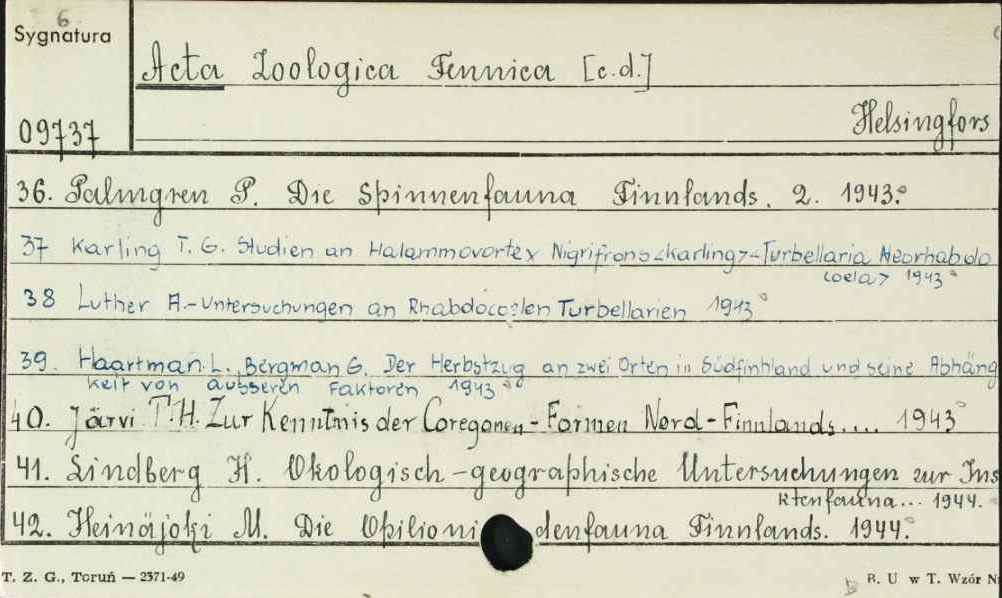 6
Sygnatura
Acta Zoologica Fennica [c.d.]
09737
Helsingfors
36. Palmgren P. Die Spinnenfauna Finnlands. 2. 1943.°
37 Karling T. G. Studien an Halammovortex Nigrifrons <karling>-Turbellaria Neorhabdo
coela> 1943°
38 Luther A.-Untersuchungen an Rhabdocoelen Turbellarien 1943°
39. Haartman L., Bergman G. Der Herbstzug an zwei Orten in Südfinnland und seine Abhäng
keit von äusseren Faktoren 1943°°
40. Järvi T.H. Zur Kenntnis der Coregonen-Formen Nord-Finnlands.... 1943°
41. Lindberg H. Ökologisch-geographische Untersuchungen zur Ins
ktenfauna... 1944.°
42. Heinäjoki M. Die Opilionidenfauna Finnlands. 1944.°
T. Z. G., Toruń — 2371-49
B. U w T. Wzór N